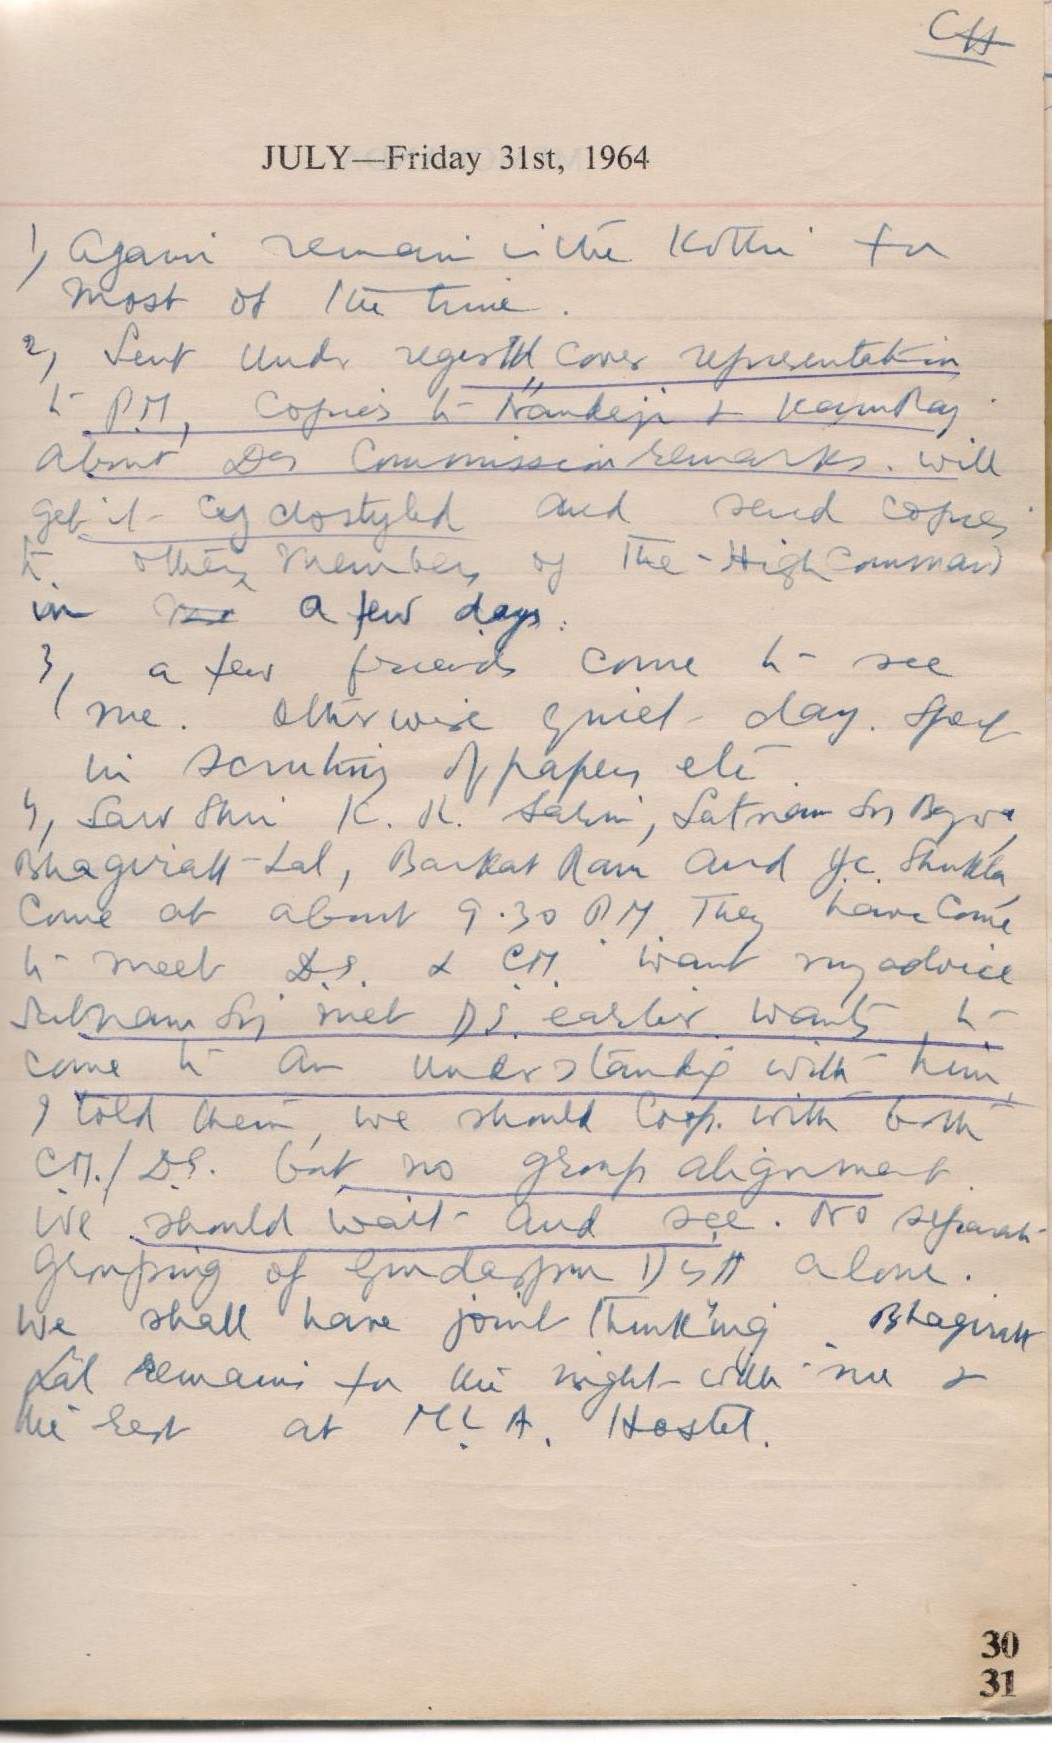 CH
JULY—Friday 31st, 1964
1, Again remain in the Kothi for
most of the time.
2, Sent under registd cover representation
to P.M, copies to Nandaji & KamRaj.
about Das Commission remarks. will
get it cyclostyled and send copies
to other members of the High Command
in a few days.
3, a few friends come to see
me. Otherwise quiet day. Spent
in scrutiny of papers etc
4, Sarv Shri K. K. Satnam Sj Bajwa,
Bhagirath Lal, Barkat Ram and Y.C. Shukla
come at about 9.30 PM They have come
to meet D.S. & C.M. want my advice
Satnam Sj met D.S. earlier wants to
come to an understandig with him
I told them, we should Coop. with both
C.M./D.S. but no group alignment.
We should wait and see. No separate
grouping of Gurdaspur Distt alone.
We shall have joint thinking. Bhagirath
Lal remains for the night with me &
the rest at M.L.A. Hostel.
30
31